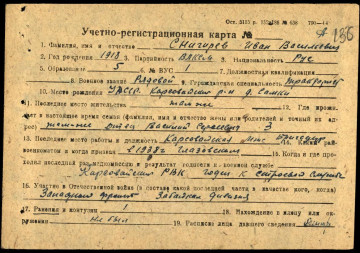 Отп. 3151 р. 190—14
Учетно-регистрационная карта №
186
1. Фамилия, имя и отчество Снигирев Иван Васильевич
2. Год рождения 1913 3. Партийность ВЛКСМ 4. Национальность Рус
5. Образование 5 6. № ВУС 1 7. Должностная квалификация
8. Воинское звание Рядовой 9. Гражданская специальность тракторист
10. Место рождения УАССР. Карсовайский р-н д.
11. Последнее место жительства там же 12. Где прожи-
вает в настоящее время семья (фамилия, имя и отчество жены или родителей и точный их ад-
рес) там же отец Василий
13. Последнее место работы и должность Карсовайская МТС 14. Каким рай-
военкоматом и когда призван в 1938 г. Глазовским 15. Когда и где про-
ходил последний раз медкомиссию и результат годности к военной службе
Карсовайский РВК годен к строевой службе
16. Участие в Отечественной войне (в составе какой последней части, в качестве кого, когда)
Западный фронт дивизия
17. Ранения и контузии 1 18. Нахождение в плену или окру-
жении не был 19. Расписка лица, давшего сведения